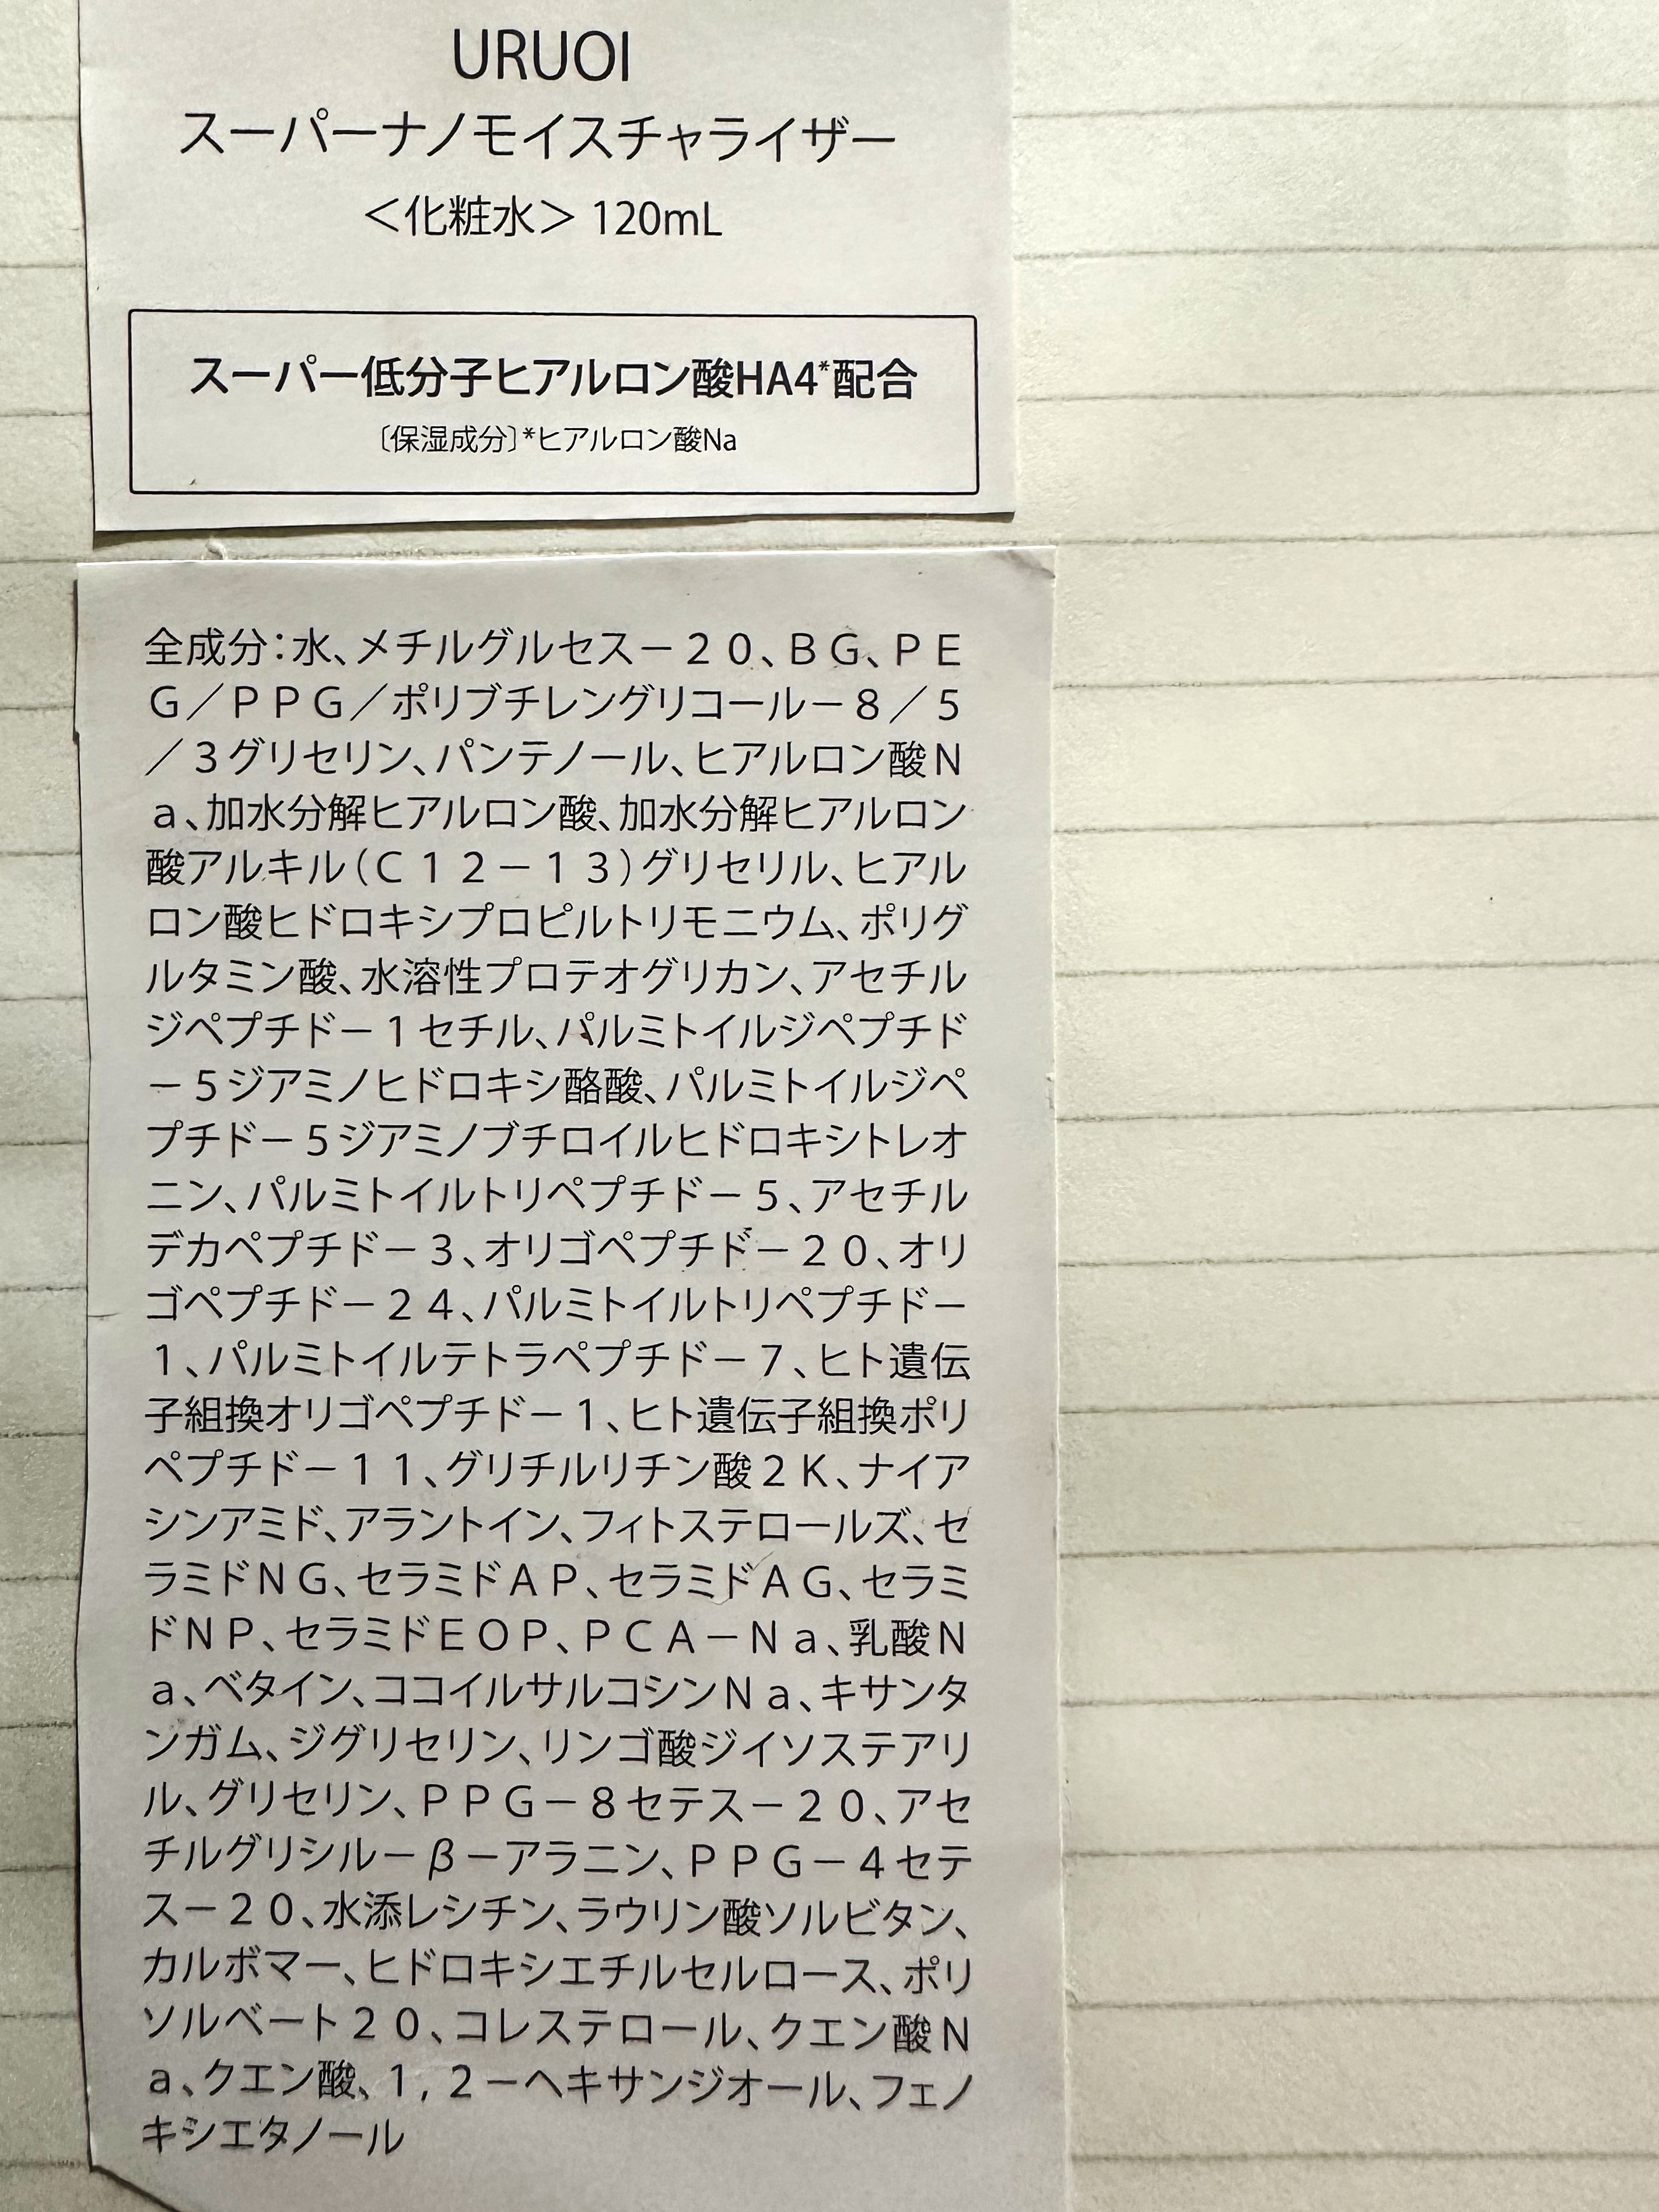 URUOI
スーパーナノモイスチャライザー
＜化粧水＞ 120mL
スーパー低分子ヒアルロン酸HA4*配合
〔保湿成分〕*ヒアルロン酸Na
全成分：水、メチルグルセス－２０、ＢＧ、ＰＥ
Ｇ／ＰＰＧ／ポリブチレングリコール－８／５
／３グリセリン、パンテノール、ヒアルロン酸Ｎ
ａ、加水分解ヒアルロン酸、加水分解ヒアルロン
酸アルキル（Ｃ１２－１３）グリセリル、ヒアル
ロン酸ヒドロキシプロピルトリモニウム、ポリグ
ルタミン酸、水溶性プロテオグリカン、アセチル
ジペプチド－１セチル、パルミトイルジペプチド
－５ジアミノヒドロキシ酪酸、パルミトイルジペ
プチド－５ジアミノブチロイルヒドロキシトレオ
ニン、パルミトイルトリペプチド－５、アセチル
デカペプチド－３、オリゴペプチド－２０、オリ
ゴペプチド－２４、パルミトイルトリペプチド－
１、パルミトイルテトラペプチド－７、ヒト遺伝
子組換オリゴペプチド－１、ヒト遺伝子組換ポリ
ペプチド－１１、グリチルリチン酸２Ｋ、ナイア
シンアミド、アラントイン、フィトステロールズ、セ
ラミドＮＧ、セラミドＡＰ、セラミドＡＧ、セラミ
ドＮＰ、セラミドＥＯＰ、ＰＣＡ－Ｎａ、乳酸Ｎ
ａ、ベタイン、ココイルサルコシンＮａ、キサンタ
ンガム、ジグリセリン、リンゴ酸ジイソステアリ
ル、グリセリン、ＰＰＧ－８セテス－２０、アセ
チルグリシル－β－アラニン、ＰＰＧ－４セテ
ス－２０、水添レシチン、ラウリン酸ソルビタン、
カルボマー、ヒドロキシエチルセルロース、ポリ
ソルベート２０、コレステロール、クエン酸Ｎ
ａ、クエン酸、１，２－ヘキサンジオール、フェノ
キシエタノール